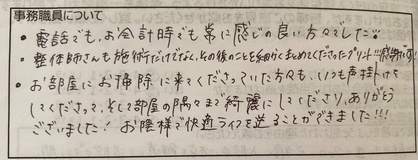 事務職員について
• 電話でも、お会計時でも常に感じの良い方々でした!!
• 整体師さんも施術だけでなく、その後のことを細かくまとめてくださったプリント!!!感謝です!
• お部屋にお掃除に来てくださっていた方々も、いつも声掛けを
してくださって、そして部屋の隅々まで綺麗にしてくださり、ありがとう
ございました! お陰様で快適ライフを送ることができました!!!